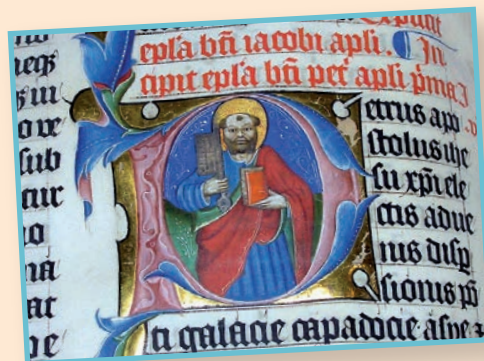 Explicit
epl'a bt'i iacobi apl'i. In
cipit epl'a bt'i pet' apl'i p'ma
etrus apo
stolus ihe
su xp'i ele
ctis adue
nis disp
sionis po
ti galacie capadocie asye
neqз
sub
tur
no
na
at